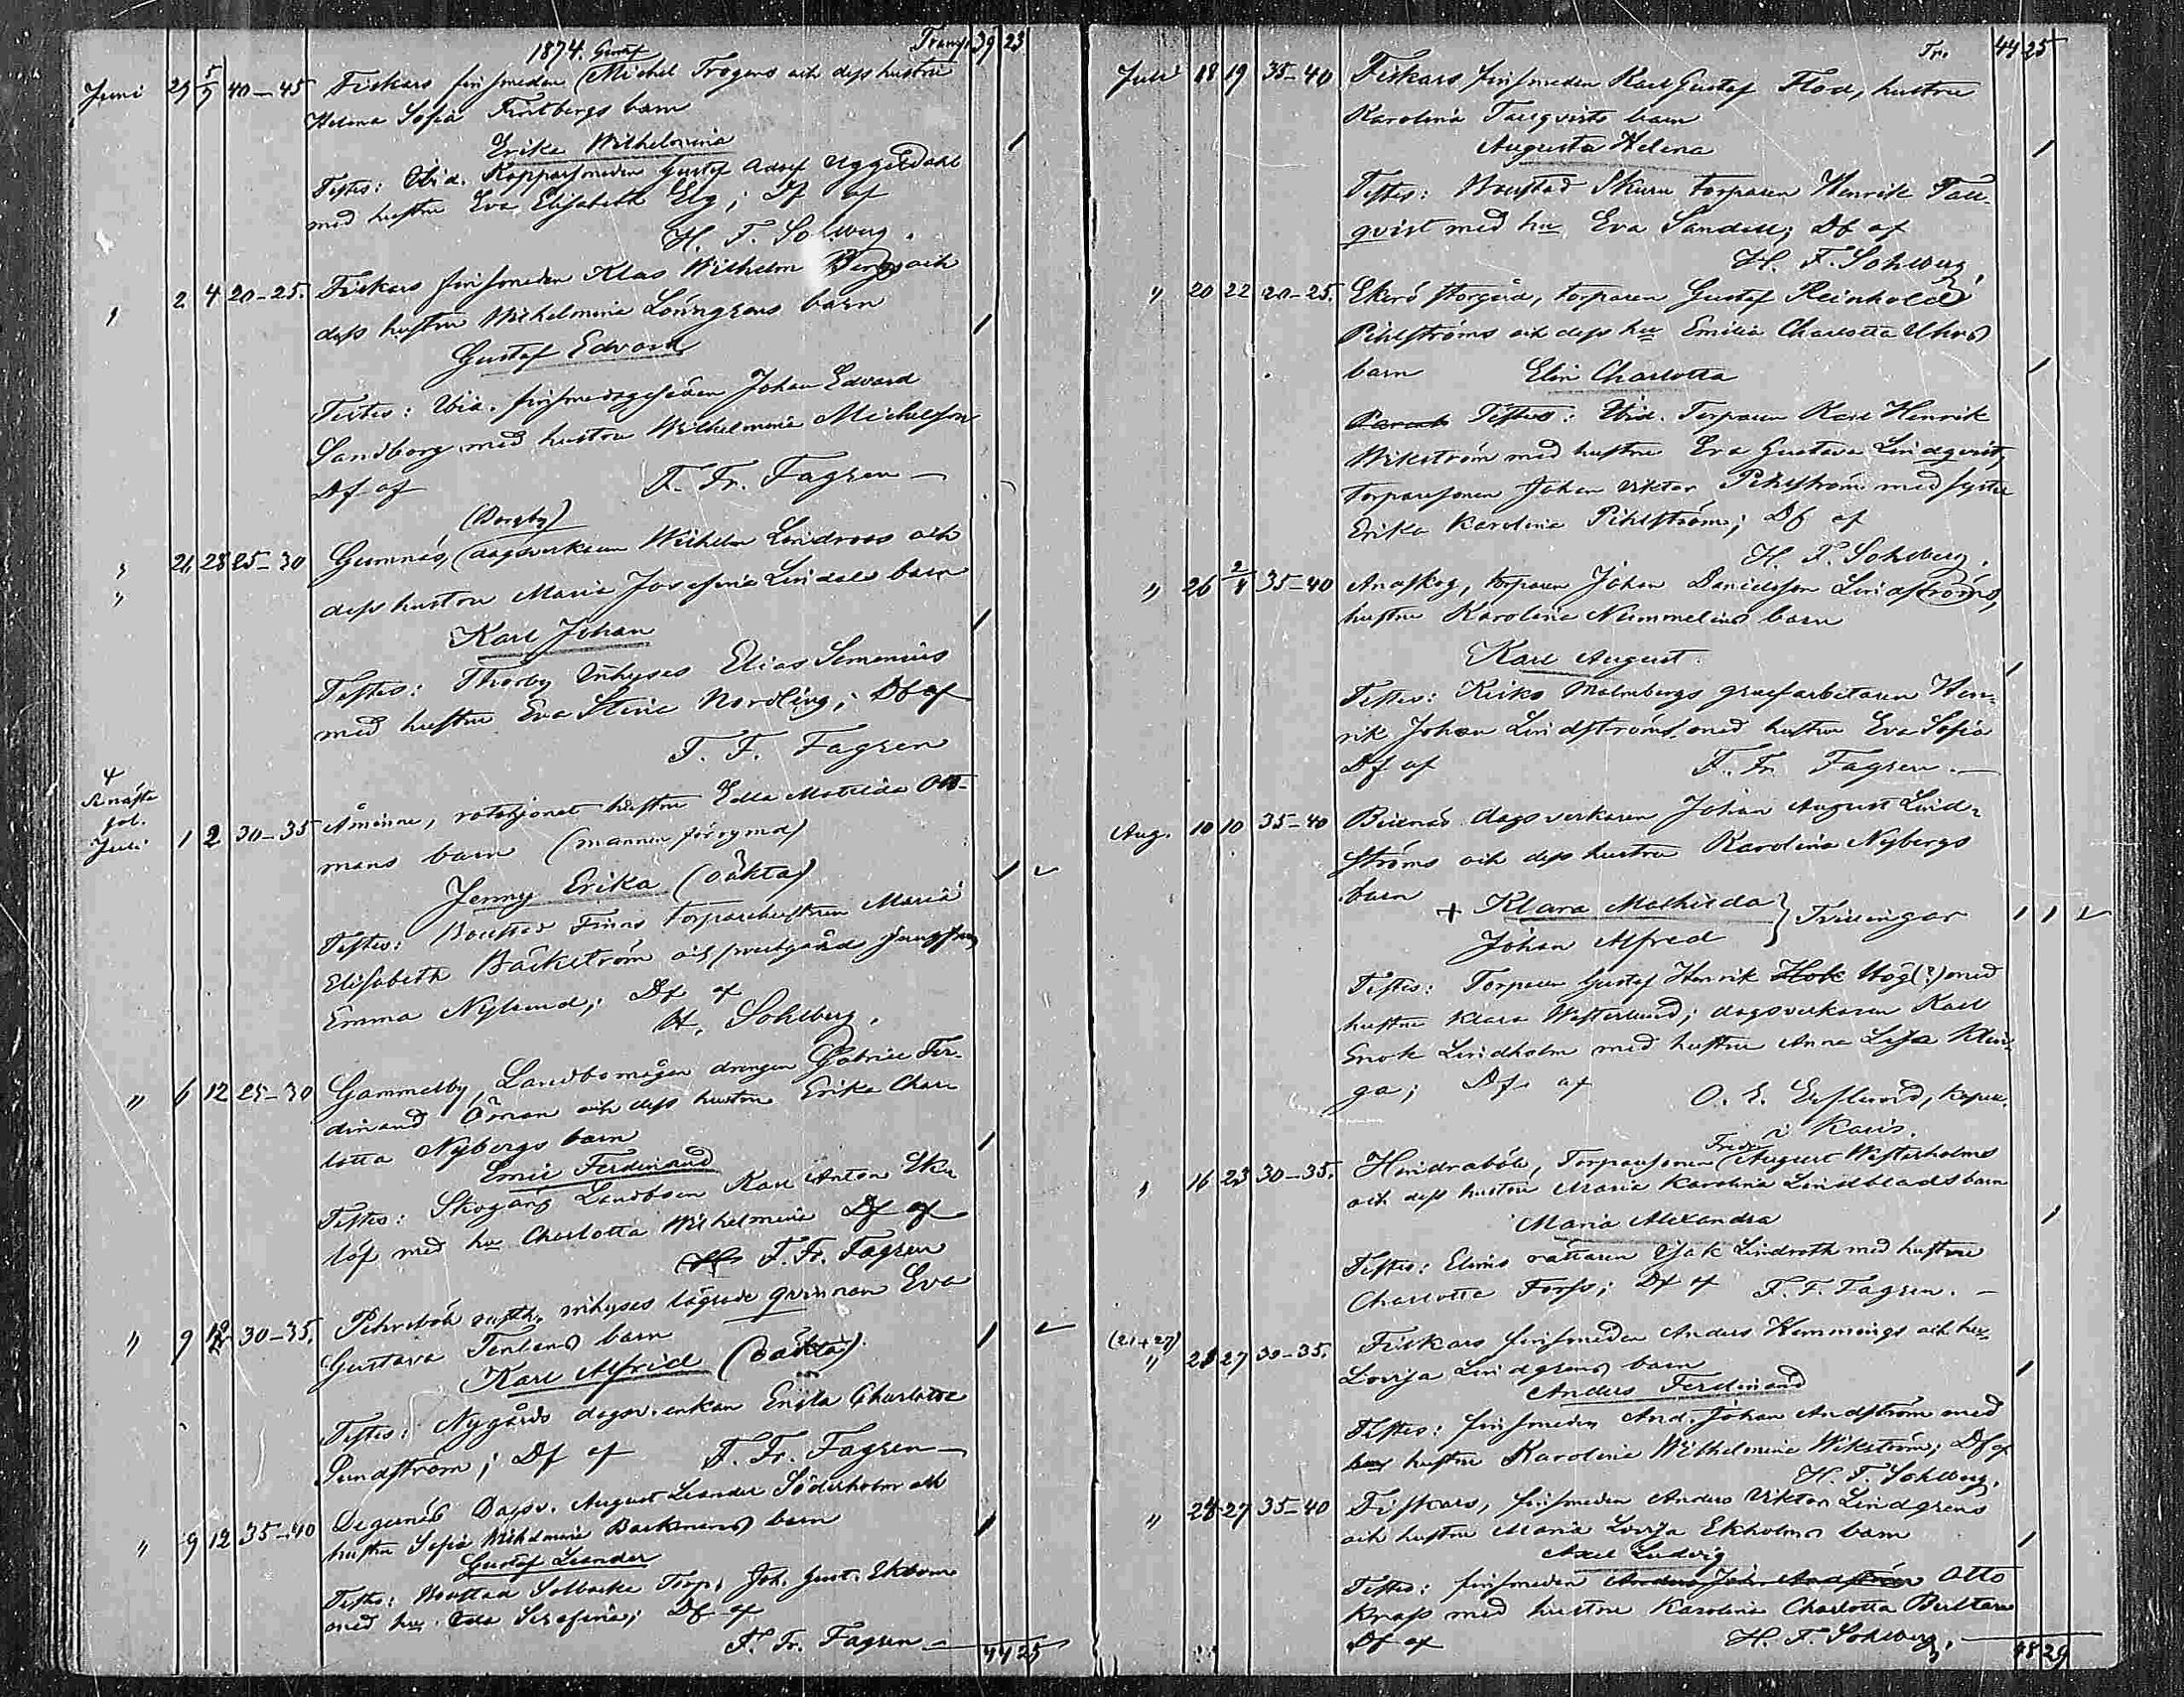 1874. Gustaf Transp. 39 23
Juni 29 5/7 40–45 Fiskars finsmeden (Michel Trogens och dess hustru
Helena Sofia barn
Erika Wilhelmina
Testes: Ibid. Kopparsmeden Gustaf Adolf Uggeldahl
med hustru Eva Elisabeth Elg; Df af
H. F. Sohlberg.
2 4 20–25. Fiskars finsmeden Klas Wilhelm Bergs och
dess hustru Wilhelmina Lönngrens barn
Gustaf Edvard
Testes: Ibid. finsmedsgesällen Johan Edvard
Sandberg med hustru Wilhelmina Michelsson
Df af F. Fr. Fagren –
(Dorgby)
26 28 25–30 Gumnäs, (dagsverkaren Wilhelm Lindroos och
dess hustru Maria Josefina Lindals barn
Karl Johan
Testes: Thorby Inhyses Elias Simonius
med hustru Eva Stina Nordling; Df af
F. F. Fagren
Se nästa
fol.
Juli 1 2 30–35 Åminne, rotehjonet hustru Edla Matilda Ott-
mans barn (mannen förrymd)
Jenny Erika (oäkta)
Testes: Boustad Finns torparehustrun Maria
Elisabeth Bäckström och prestgårds jungfrun
Emma Nylund; Df af
H. Sohlberg.
" 6 12 25–30 Gammelby, Landbomågen drengen Gabriel Fer-
dinand Öman och dess hustru Erika Char-
lotta Nybergs barn
Emil Ferdinand
Testes: Skogäng Landboen Karl Anton Eke-
löf med hu Charlotta Wilhelmina Df af
F. Fr. Fagren
" 9 12 30–35. Pehrsböle rusth. inhyses lägrade qvinnan Eva
Gustava Tenlens barn
Karl Alfrid (oäkta).
Testes: Nygårds dagsv. enkan Engla Charlotta
Sundström; Df af F. Fr. Fagren –
" 9 12 35–40 Degernäs Dagsv. August Leander Söderholm och
hustru Sofia Wilhelmina Backmans barn
Gustaf Leander
Testes: Boustad Solbacka Torp. Joh. Gust. Ekbom
med hu. Eda Serafina; Df af
F. Fr. Fagren – 44 25
Tr. 44 25
Juli 18 19 35–40 Fiskars finsmeden Karl Gustaf Flod, hustru
Karolina Tallqvists barn
Augusta Helena
Testes: Boustad Skuru torparen Henrik Tall-
qvist med hu Eva Sandell; Df af
H. F. Sohlberg.
" 20 22 20–25. Ekerö storgård, torparen Gustaf Reinhold
Pihlströms och dess hu Emilia Charlotta Uhrs
barn Elin Charlotta
Testes: Ibid. Torparen Karl Henrik
Wikström med hustru Eva Gustava Lindqvist,
torparesonen Johan Viktor Pihlström med syster
Erika Karolina Pihlström; Df af
H. F. Sohlberg.
" 26 2/8 35–40 Anaskog, torparen Johan Danielsson Lindströms,
hustru Karolina Nummelins barn
Karl August.
Testes: Kisko Malmbergs grufarbetaren Hen-
rik Johan Lindströms med hustru Eva Sofia
Df af F. Fr. Fagren. –
Aug. 10 10 35–40 Billnäs dagsverkaren Johan August Lind-
ströms och dess hustru Karolina Nybergs
barn + Klara Mathilda } Tvillingar
Johan Alfred
Testes: Torparen Gustaf Henrik Hok Hög(?) med
hustru Klara Westerlund; dagsverkaren Karl
Enok Lindholm med hustru Anna Lisa Klin-
ga; Df. af O. E. Eklund, kapel.
i Karis.
16 23 30–35. Hindraböle, Torparsonen (Fredr. August Westerholms
och dess hustru Maria Karolina Lindblads barn
Maria Alexandra
Testes: Elimo rättaren Isak Lindroth med hustru
Charlotta Forss; Df af F. F. Fagren. –
(21+27)
" 21 27 30–35. Fiskars finsmeden Anders Hemmings och hu
Lovisa Lindgrens barn
Anders Ferdinand
Testes: finsmeden And. Johan Andström med
hustru Karolina Wilhelmina Wikström; Df af
H. F. Sohlberg.
" 24 27 35–40 Fiskars, finsmeden Anders Viktor Lindgrens
och hustru Maria Lovisa Ekholms barn
Axel Ludvig
Testes: finsmeden Anders Joh. Andström Otto
Knass med hustru Karolina Charlotta Bultare
Df af H. F. Sohlberg. – 48 29